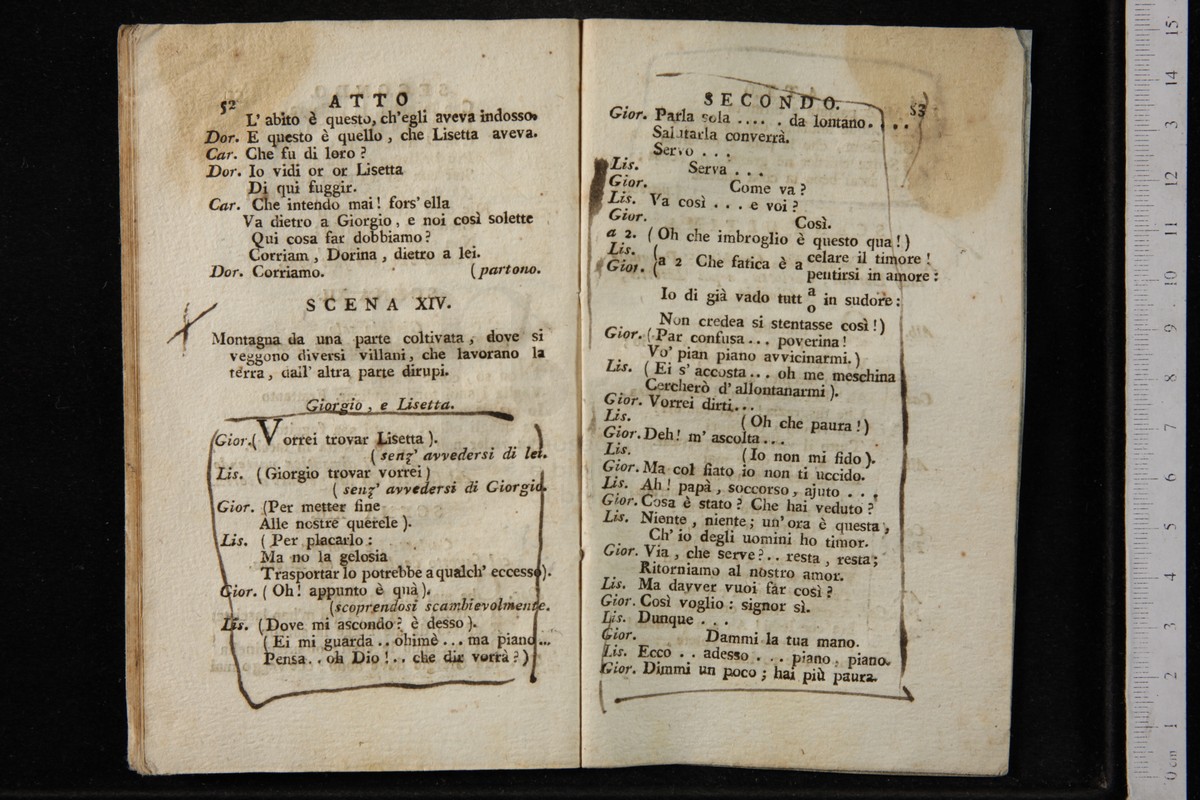 52 ATTO
L' abito è questo, ch'egli aveva indosso.
Dor. E questo è quello, che Lisetta aveva.
Car. Che fu di loro?
Dor. Io vidi or or Lisetta
Di qui fuggir.
Car. Che intendo mai! fors' ella
Va dietro a Giorgio, e noi così solette
Qui cosa far dobbiamo?
Corriam, Dorina, dietro a lei.
Dor. Corriamo. (partono.
SCENA XIV.
Montagna da una parte coltivata, dove si
veggono diversi villani, che lavorano la
terra, dall' altra parte dirupi.
Giorgio, e Lisetta.
Gior. (Vorrei trovar Lisetta).
(senz' avvedersi di lei.
Lis. (Giorgio trovar vorrei)
(senz' avvedersi di Giorgio.
Gior. (Per metter fine
Alle nostre querele).
Lis. (Per placarlo:
Ma no la gelosia
Trasportar lo potrebbe a qualch' eccesso).
Gior. (Oh! appunto è quà).
(scoprendosi scambievolmente.
Lis. (Dove mi ascondo? è desso).
(Ei mi guarda .. ohimè ... ma piano ...
Pensa .. oh Dio! .. che dir vorrà?)
SECONDO. 53
Gior. Parla sola .... . da lontano. ...
Salutarla converrà.
Servo ...
Lis. Serva ...
Gior. Come va?
Lis. Va così ... e voi?
Gior. Così.
a 2. (Oh che imbroglio è questo qua!)
Lis. Gior. (a 2 Che fatica è a celare il timore!
pentirsi in amore:
Io di già vado tutt a/o in sudore:
Non credea si stentasse così!)
Gior. (Par confusa ... poverina!
Vo' pian piano avvicinarmi.)
Lis. (Ei s' accosta ... oh me meschina
Cercherò d' allontanarmi).
Gior. Vorrei dirti...
Lis. (Oh che paura!)
Gior. Deh! m' ascolta ...
Lis. (Io non mi fido).
Gior. Ma col fiato io non ti uccido.
Lis. Ah! papà, soccorso, ajuto ...
Gior. Cosa è stato? Che hai veduto?
Lis. Niente, niente; un' ora è questa,
Ch' io degli uomini ho timor.
Gior. Via, che serve? .. resta, resta;
Ritorniamo al nostro amor.
Lis. Ma davver vuoi far così?
Gior. Così voglio: signor sì.
Lis. Dunque ...
Gior. Dammi la tua mano.
Lis. Ecco .. adesso ... piano, piano.
Gior. Dimmi un poco; hai più paura.
0 cm 1 2 3 4 5 6 7 8 9 10 11 12 13 14 15